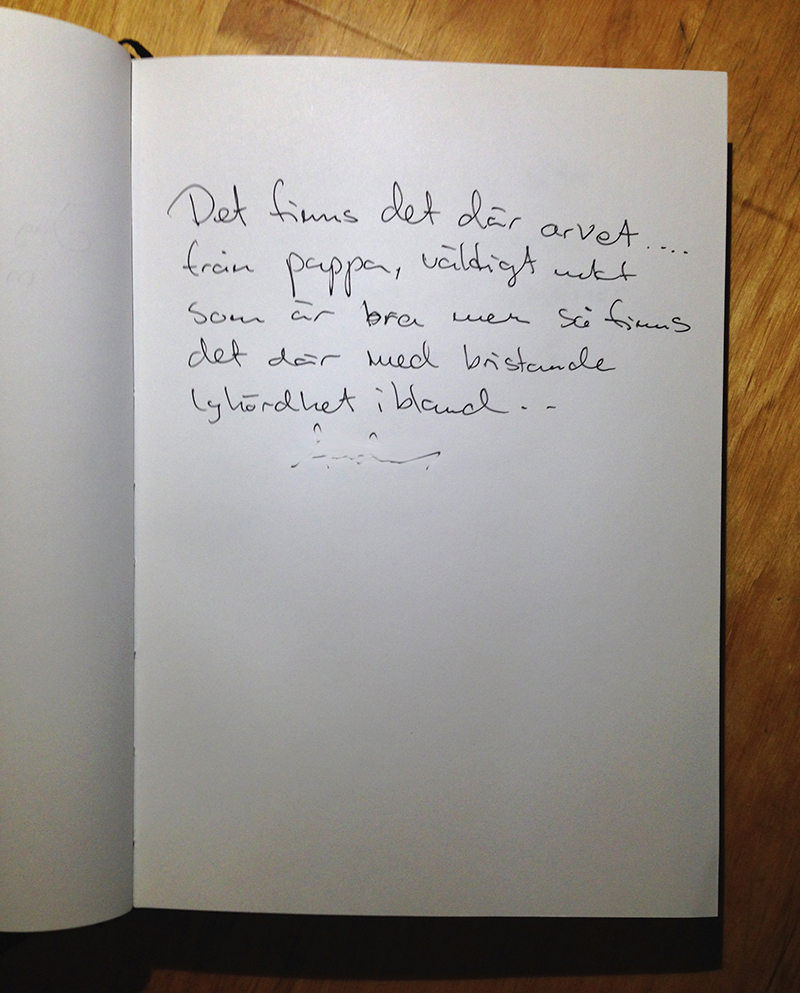 Det finns det där arvet....
från pappa, väldigt mkt
som är bra men så finns
det där med bristande
lyhördhet ibland..